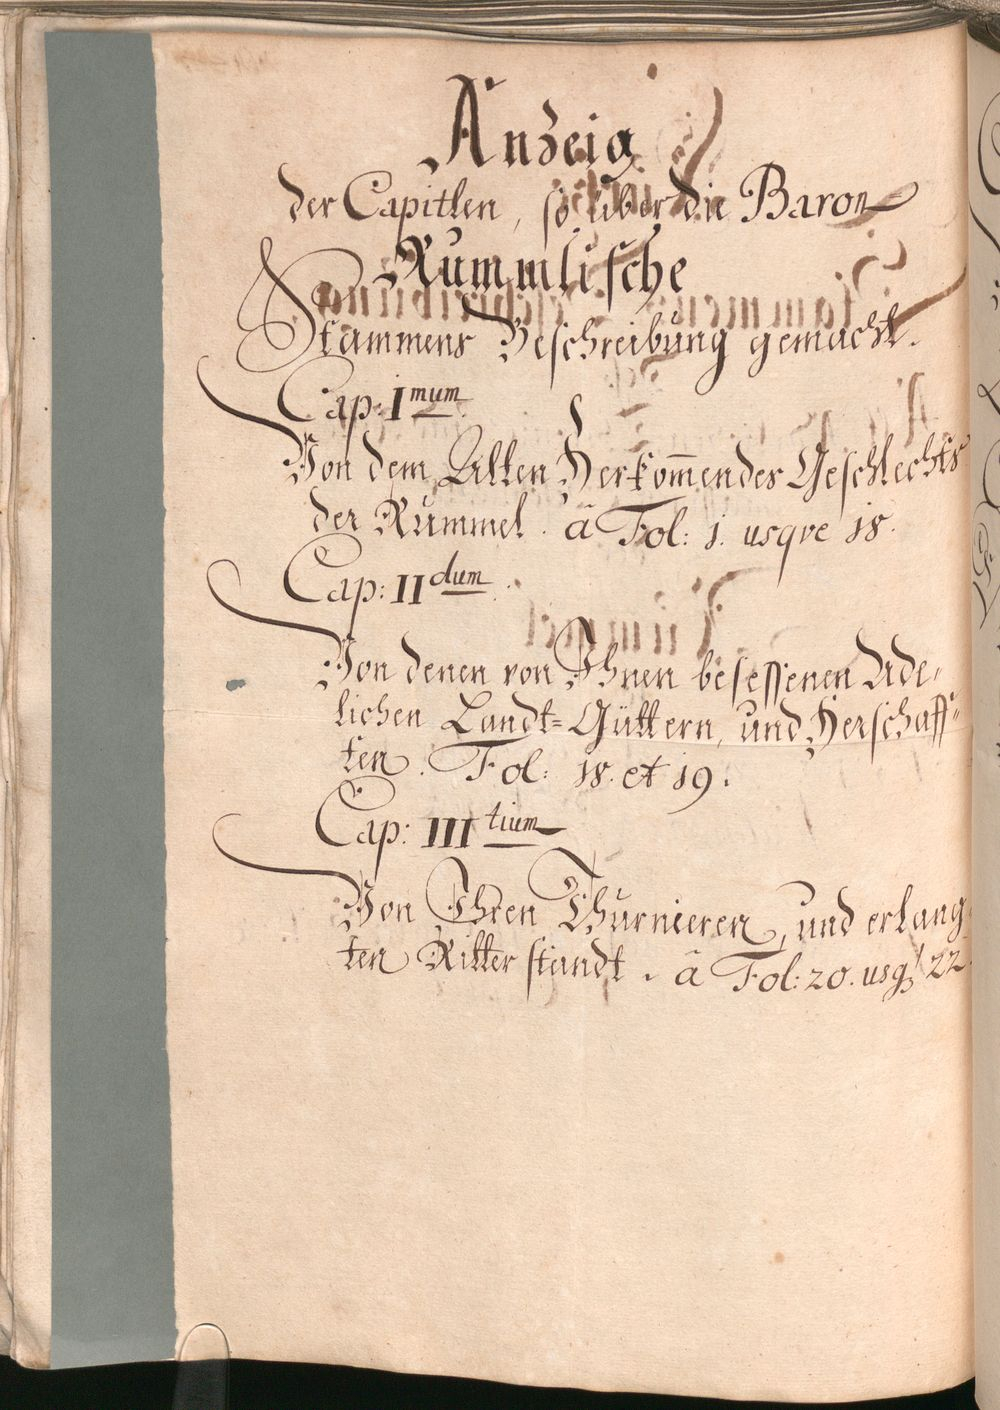 Anzeig
der Capitlen, so über die Baron
Rummlische
Stammens Beschreibung gemacht.
Cap: I mum
Von dem Alten Herkom̅en des Geschlechts
der Rummel. â Fol: 1. usqve 18.
Cap: II dum.
Von denen von Ihnen besessenen Ade,,
lichen Landt=Güttern, und Herschaff,,
ten. Fol: 18. et 19.
Cap: III tium
Von Ihren Thurnieren, und erlang
ten Ritterstandt. â Fol: 20. usq 22.